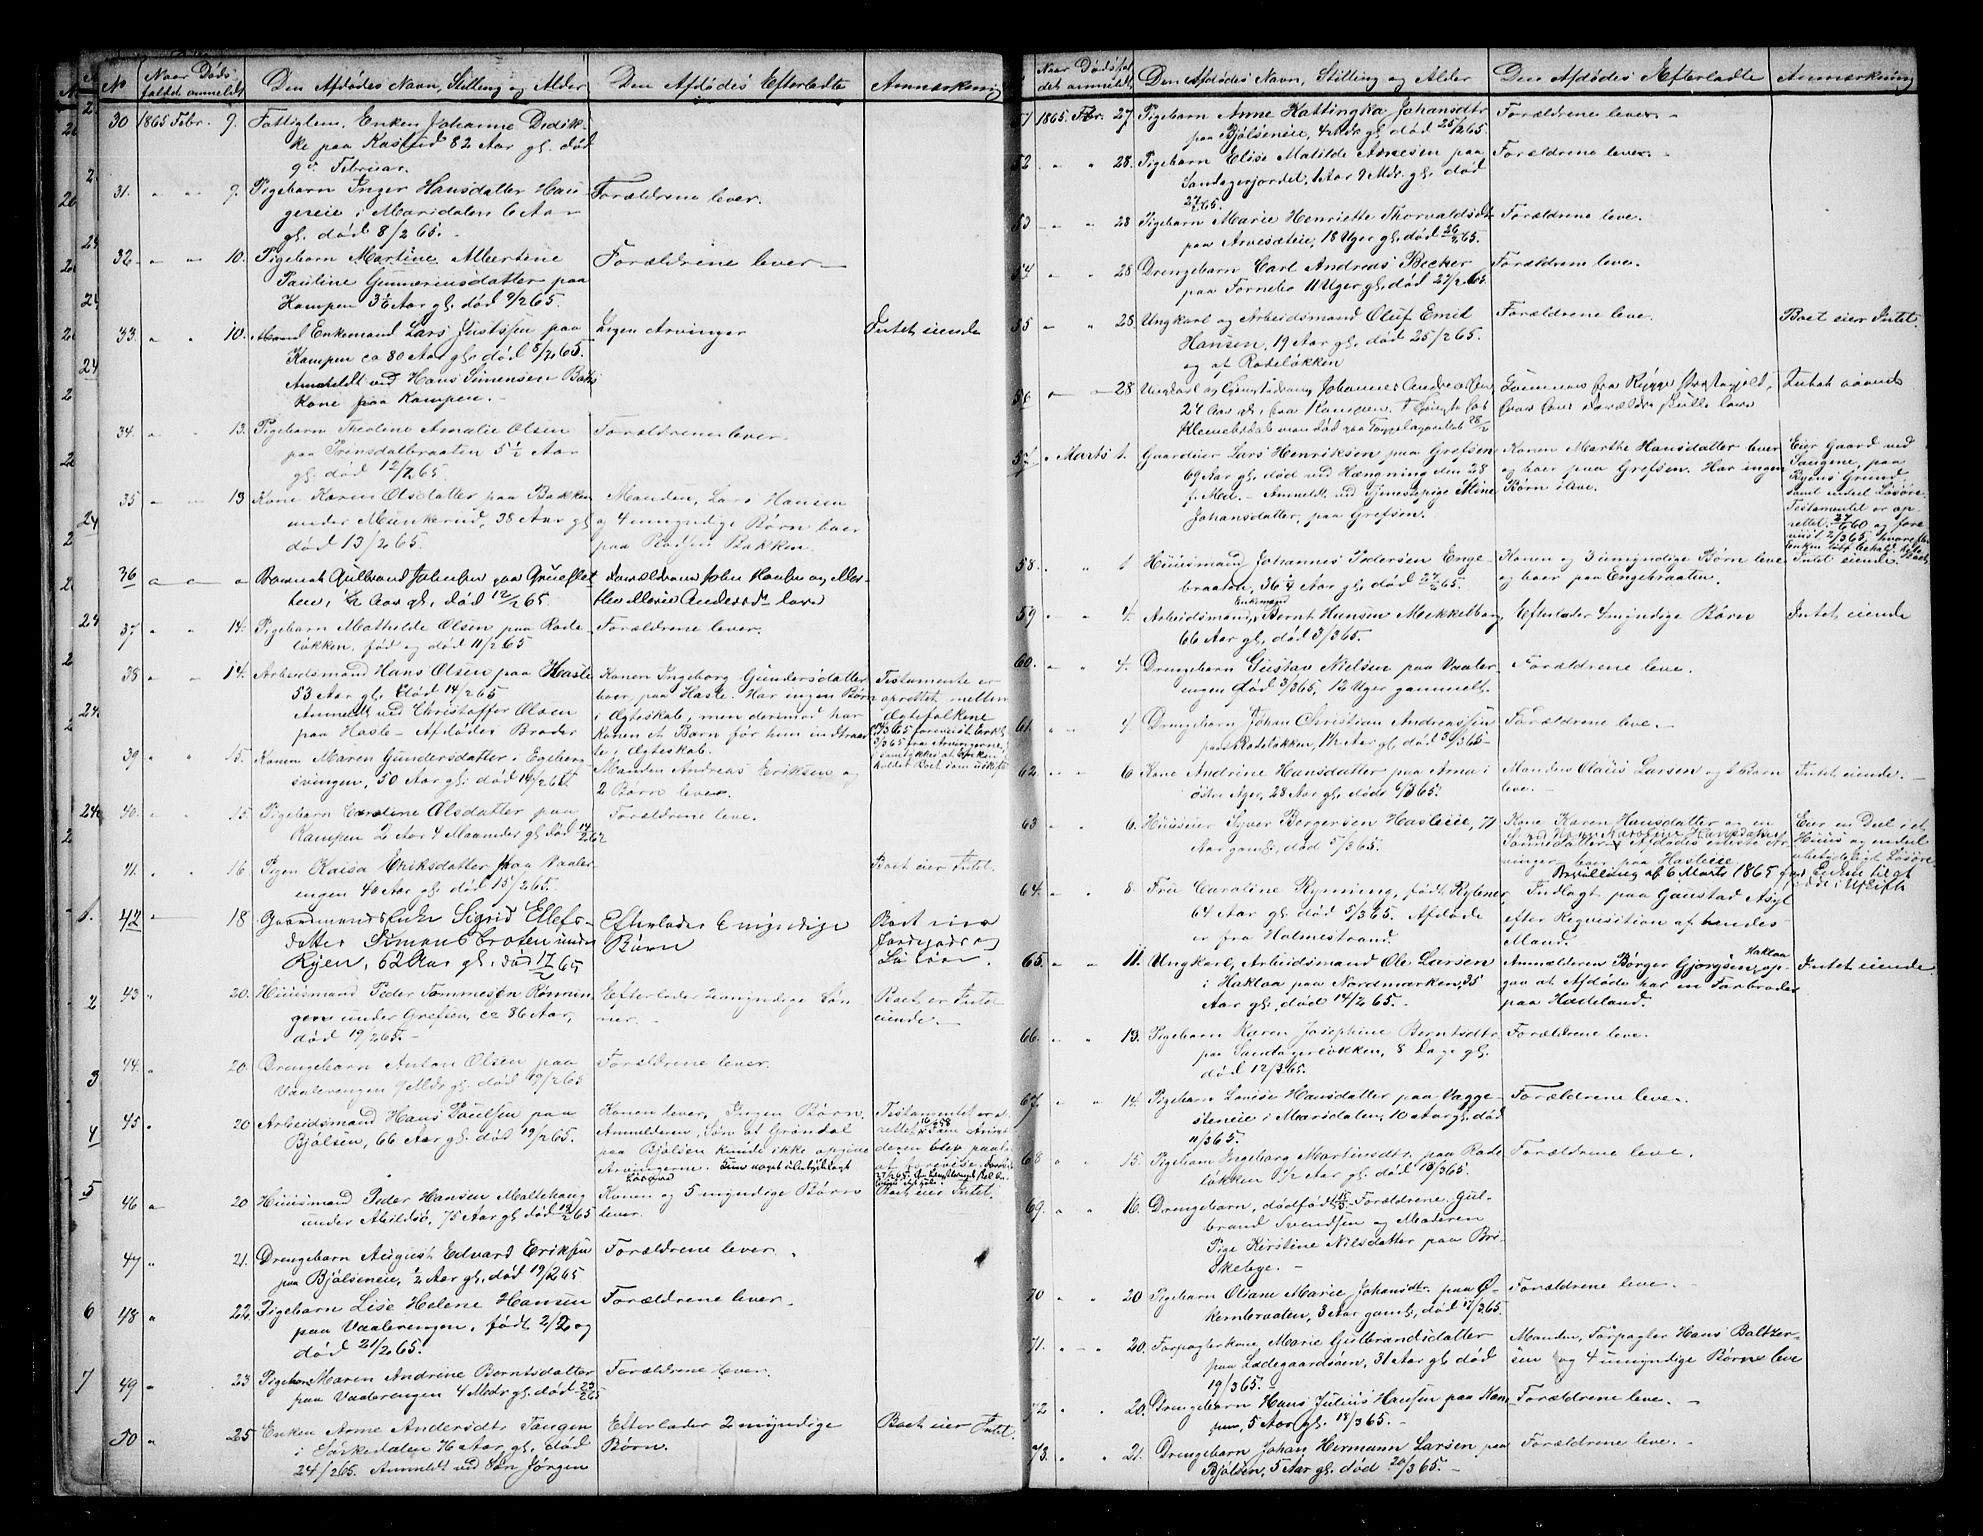 No Naar Døds- Den Afdødes Navn, Stilling og Alder Den Afdødes Efterladte Anmærkning
faldet anmeldt
30 1865 Febr. 9. Fattiglem, Enken Johanne Didik-
ke paa Kastrud 82 Aar gl. død
9de Februar.
31. " " 9. Pigebarn Inger Hansdatter Hau- Forældrene lever.
gereie i Maridalen 6 Aar
gl. død 8/2 65.
32. " " 10. Pigebarn Martine Albertine Forældrene lever
Pauline Gunneriusdatter paa
Kampen 3½ Aar gl. død 9/2 65.
33. " " 10. Enkemand Lars Justsen paa Ingen Arvinger Intet eiende
Kampen ca 80 Aar gl. død 8/2 65.
Anmeldt ved Hans Simensen
Kone paa Kampen.
34. " " 13. Pigebarn Theoline Amalie Olsen Forældrene lever.
paa Trensdalbraaten 5½ Aar
gl. død 12/2 65.
35 " " 13 Kone Karen Olsdatter paa Bakken Manden, Lars Hansen
under Munkerud, 38 Aar gl. og 4 umyndige Børn boer
død 13/2 65. paa Pladsen Bakken.
36 " " " Barnet Gulbrand Johnsen paa Grueslet- Forældrene John Paulsen og Elles-
ten, ½ Aar gl., død 12/2 65. Marie Andersd. lever
37. " " 14. Pigebarn Mathilde Olsen paa Rode- Forældrene lever.
løkken, fød og død 11/2 65
38 " " 14. Arbeidsmand Hans Olsen paa Hasle Konen Ingeborg Gundersdatter Testamente er
53 Aar gl. død 14/2 65 boer paa Hasle. Har ingen Børn oprettet mellem
Anmeldt ved Christoffer Olsen i Ægteskab, men derimod har Ægtefolkene
paa Hasle - Afdødes Broder Konen et Barn før hun indtraad-
te i Ægteskab.
39 " " 15. Konen Maren Gundersdatter i Egeberg- Manden Andreas Eriksen og
svingen, 50 Aar gl. død 14/2 65. 2 Børn lever.
40. " " 15. Pigebarn Caroline Olsdatter paa Forældrene leve.
Kampen 2 Aar 4 Maaneder gl. død 14/2 65
41. " " 16. Pigen Kaisa Eriksdatter paa Vaaler- Boet eier Intet.
engen 40 Aar gl. død 15/2 65.
42 " 18 Gaardmands Enke Sigrid Ellefs- Efterlader 6 myndige Boet eier
datter Simensbraaten under Børn Jordegods og
Ryen, 62 Aar gl., død 17/2 65 Løsøre.
43 " 20. Huusmand Peder Tommesen Rønnin- Efterlader 2 myndige Søn- Boet er Intet
gen under Grefsen, ca 86 Aar, ner. eiende.
død 19/2 65.
44. " 20. Drengebarn Anton Olsen paa Forældrene lever.
Vaalerengen 9 Mdr gl. død 19/2 65
45 " 20 Arbeidsmand Hans Paulsen paa Konen lever, Ingen Børn. Testamentet er op-
Bjølsen, 66 Aar gl. død 19/2 65. Anmelderen, Søn at Grøndal rettet
paa Bjølsen kunde ikke opgive deren blev paalagt
Arvingerne. at forevise.
46 " 20 Huusmand Peder Hansen Mallehaug Konen og 5 myndige Børn Boet eier Intet.
under Abildsø, 75 Aar gl. død 19/2 65 lever.
47 " 21. Drengebarn August Edvard Eriksen Forældrene lever.
paa Bjølseneie, ½ Aar gl. død 19/2 65
48 " 22. Pigebarn Lise Helene Hansen Forældrene lever.
paa Vaalerengen, født 2/2 og
død 21/2 65.
49 " 23 Pigebarn Maren Andrine Berntsdatter Forældrene lever.
paa Vaalerengen 4 Mdr gl. død 22/2 65
50 " 25 Enken Anne Andersdtr Tangen Efterlader 2 myndige Boet eier Intet.
i Sørkedalen 76 Aar gl. død Børn.
24/2 65. Anmeldt ved Søn Jørgen
Naar Dødsfal- Den Afdødes Navn, Stilling og Alder Den Afdødes Efterladte Anmærkning
det anmeldt
51 1865. Febr. 27. Pigebarn Anne Kattingka Johansdtr Forældrene lever.
paa Bjølseneie, 4 Mdr gl. død 25/2 65.
52 " " 28. Pigebarn Elise Matilde Arnesen paa Forældrene lever.
Sandagerjordet, 1 Aar 9 Mdr. gl. død
27/2 65.
53 " " 28 Pigebarn Marie Henriette Thorvaldsdtr Forældrene leve.
paa Arvesæteie, 18 Uger gl. død 26/2 65.
54 " " 28. Drengebarn Carl Andreas Becker Forældrene leve.
paa Fornebo 11 Uger gl. død 27/2 65.
55 " " 28. Ungkarl og Arbeidsmand Oluf Emil Forældrene leve. Boet eier Intet.
Hansen, 19 Aar gl. død 25/2 65.
og af Rodeløkken
56 " 28 Ungkarl og Johannes Andreassen fra Rygge Præstegjeld, Intet eiende
24 Aar gl., fra Kampen. Forældre skulle leve
57 " Marts 1. Gaardeier Lars Henriksen paa Grefsen Konen Marthe Hansdatter lever Eier Gaard ved
69 Aar gl. død ved Hængning den 28 og boer paa Grefsen. Har ingen Saugene, paa
f. Md. - Anmeldt ved Tjenestepige Stine Børn ilive. Ryens Grund
Johansdatter, paa Grefsen. samt endel Løsøre.
Testamentet er op-
rettet 27/6 60 og fore-
viist 2/3 65,
58. " " 1 Huusmand Johannes Pedersen Enge- Konen og 3 umyndige Børn leve Intet eiende.
braaten, 36¼ Aar gl. død 27/2 65. og boer paa Engebraaten.
59 " " 4. Arbeidsmand, Enkemand Bernt Hansen Mekkelborg Efterlader 4 myndige Børn Intet eiende
66 Aar gl. død 3/3 65.
60. " " 4. Drengebarn Gustav Nielsen paa Vaaler- Forældrene leve.
engen død 3/3 65, 12 Uger gammelt.
61. " " 4. Drengebarn Johan Christian Andreassen Forældrene leve.
paa Rodeløkken, 1½ Aar gl. død 3/3 65
62. " " 6. Kone Andrine Hansdatter paa Arna i Manden Olaus Larsen og 2 Børn Intet eiende.
østre Ager, 28 Aar gl. døde 6/3 65. leve.
63 " " 6. Huuseier Syver Børgersen Hasleeie, 71 Kone Karen Hansdatter og en Eier en Deel i et
Aar gaml, død 5/3 65. Sønnedatter Karoline Hansdatter Huus og endel
Afdødes eneste Ar- ubetydeligt Løsøre
vinger - boer paa Hasleeie.
Bevilling af 6 Marts 1865 for Enken til at
64. " " 8. Frue Caroline Ryming, født Kyhne Indlagt paa Gaustad Asyl sidde i Uskifte
64 Aar gl. død 5/3 65. Afdøde efter Reqvisition af hendes
er fra Holmestrand. Mand.
65. " " 11. Ungkarl, Arbeidsmand Ole Larsen Anmelderen Børger Gjørgsen Hakloa op- Intet eiende
i Hakloa paa Nordmarken, 35 gav at Afdøde har en Farbroder
Aar gl., død 14/2 65. paa Hadeland.
66. " " 13. Pigebarn Karen Josephine Berntsdtr. Forældrene leve.
paa Sandagerløkken, 8 Dage gl.
død 12/3 65.
67. " " 14. Pigebarn Lovise Hansdatter paa Vagge- Forældrene leve.
steneie i Maridalen, 10 Aar gl. død
11/3 65.
68 " " 15. Pigebarn Ingeborg Martinsdtr. paa Rode- Forældrene leve.
løkken 1½ Aar gl. død 13/3 65.
69. " " 16. Drengebarn, dødfød 15/3 - Forældrene: Gul-
brand Svendsen og Moderen
Pige Kirstine Nilsdatter paa Bri-
skebye.
70 " " 20 Pigebarn Oliane Marie Johansdtr. paa Ø- Forældrene leve.
kernbraaten, 3 Aar gamt, død 17/3 65.
71. " " 20. Forpagterkone, Marie Gulbrandsdatter Manden, Forpagter Hans Baltzer-
paa Ladegaardsøen, 31 Aar gl. død sen og 4 umyndige Børn leve
19/3 65.
72 " " 20. Drengebarn Hans Julius Hansen paa Kam- Forældrene leve.
pen, 5 Aar gl. 18/3 65.
73. " " 21. Drengebarn Johan Hermann Larsen paa Forældrene leve.
Bjølsen, 5 Aar gl. død 20/3 65.